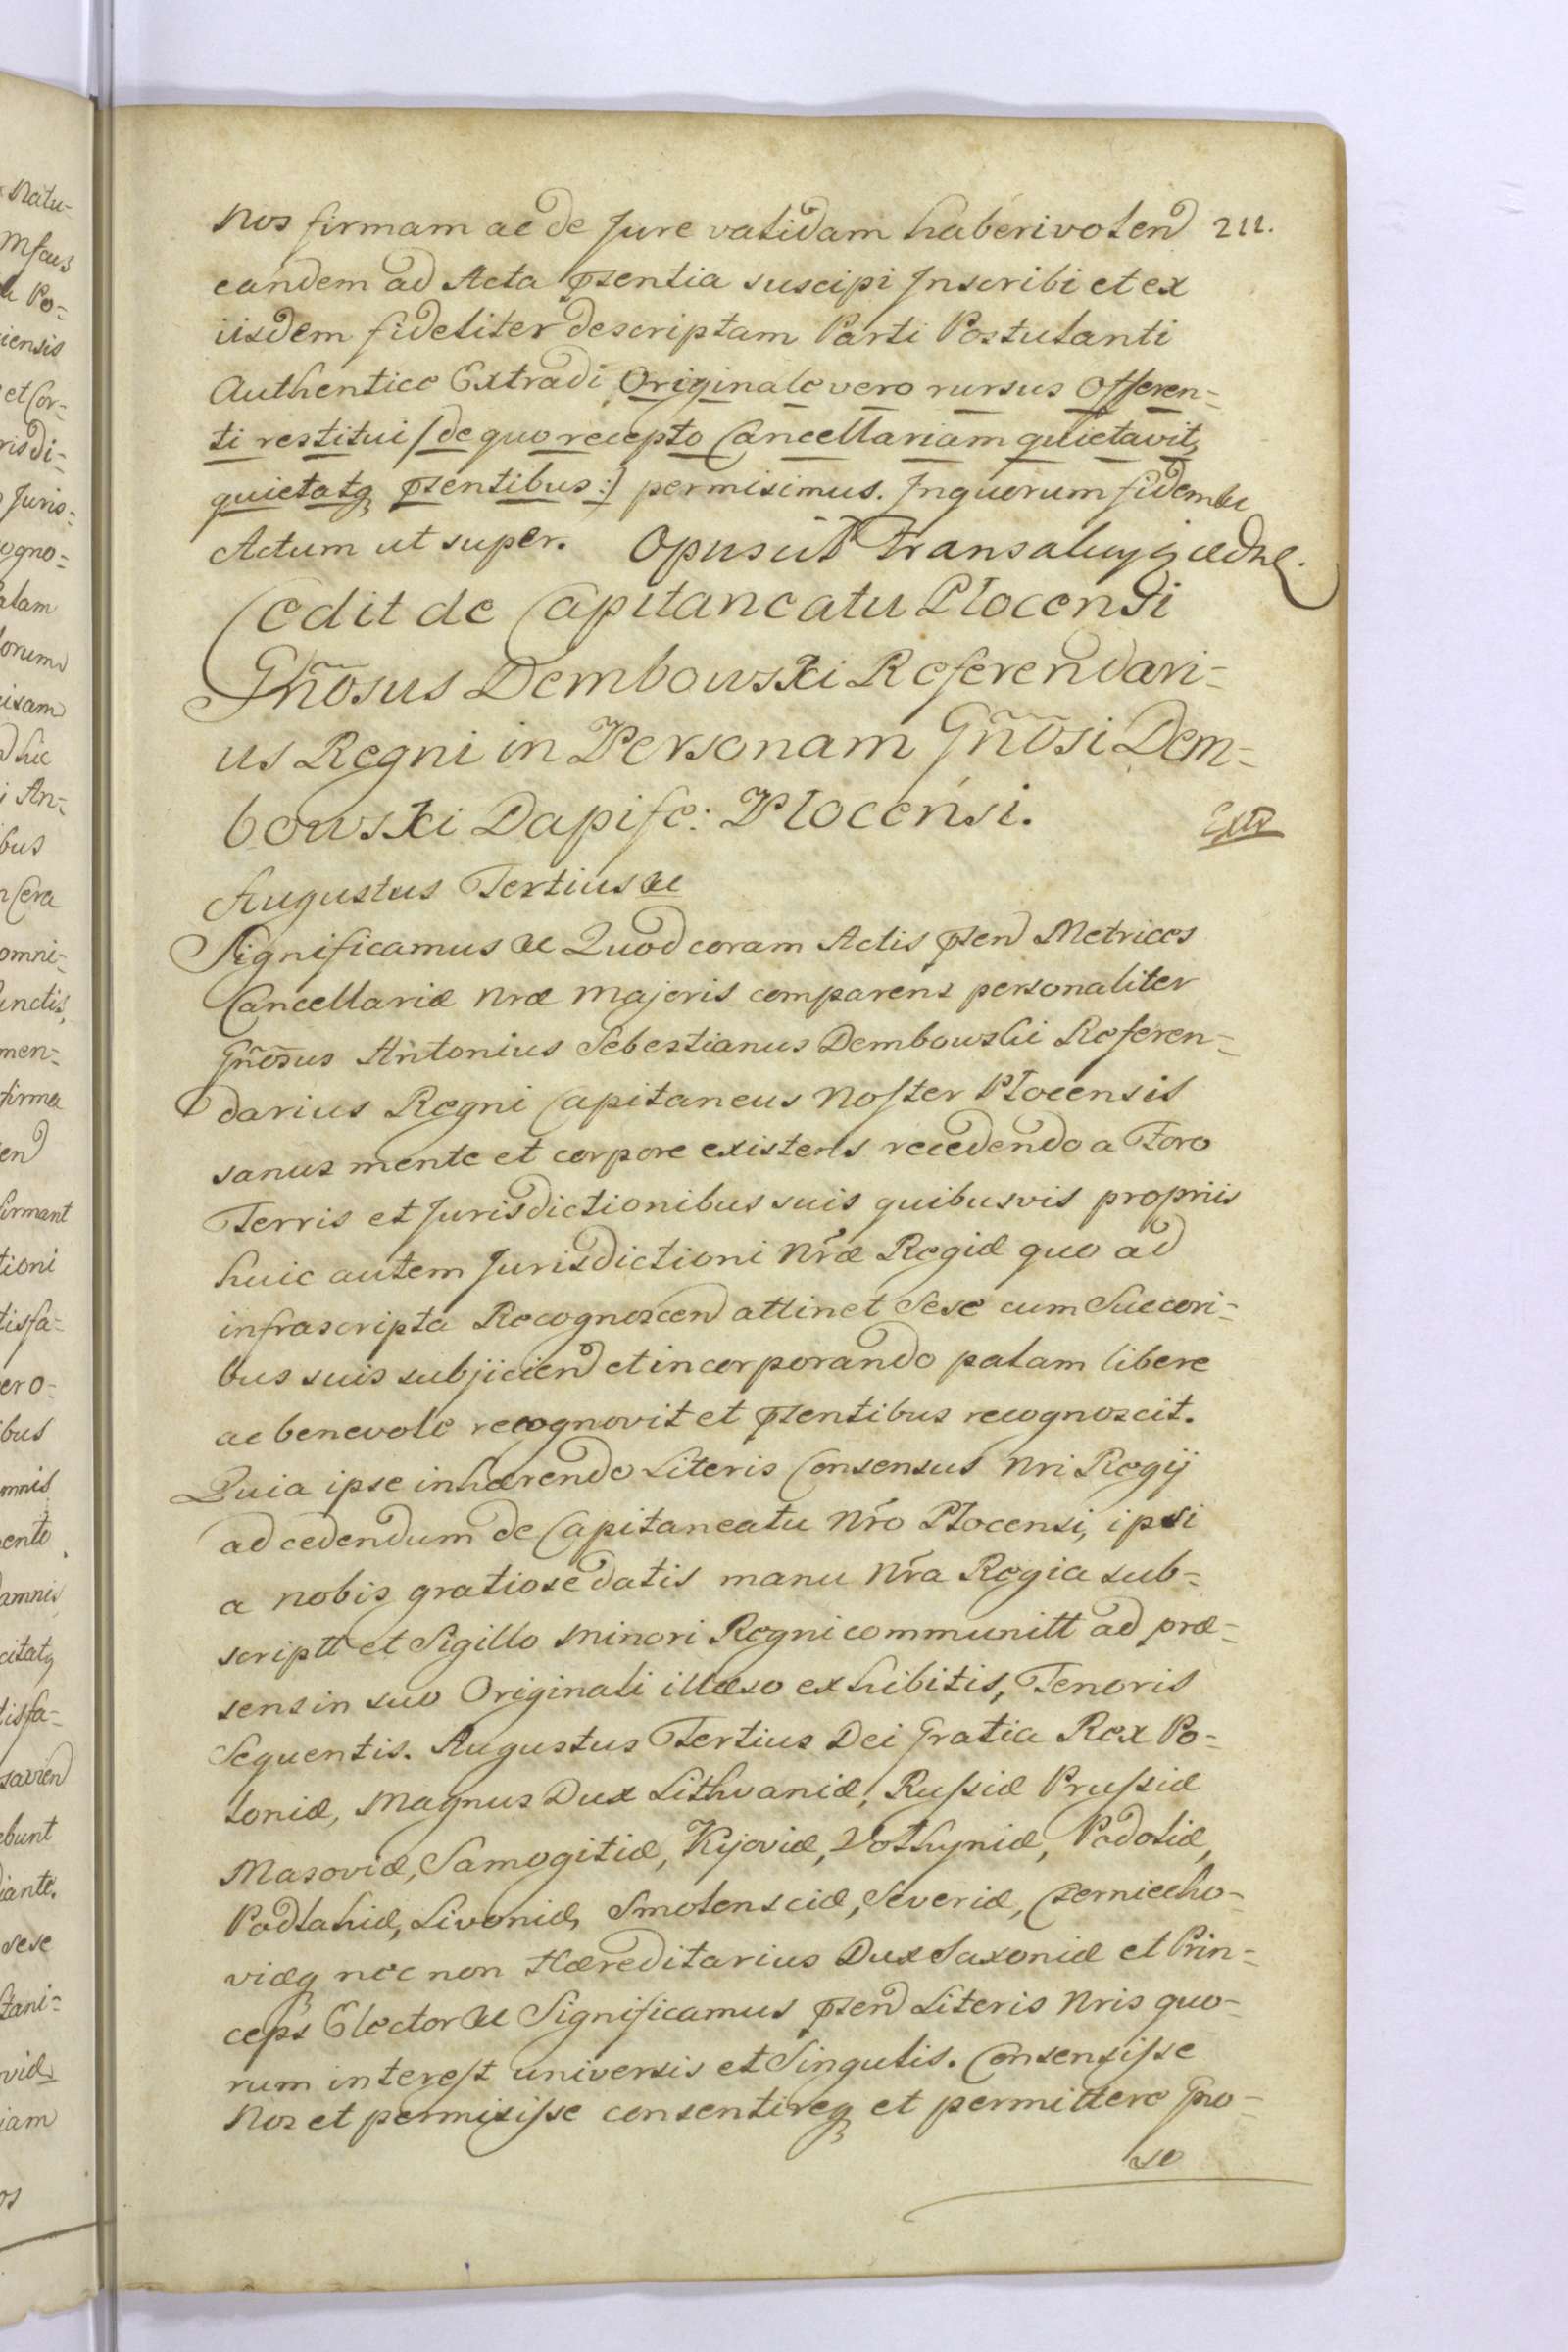 211.
Nos firmam ac de Jure validam haberi volend
eandem ad Acta pñsentia suscipi Inscribi et ex
iisdem fideliter descriptam Parti Postulanti
Authentice Extradi Originale vero rursus Offeren-
ti restitui /: de quo recepto Cancellariam quietavit,
quietatq pñsentibus :/ permisimus. In quorum fidem &c
Actum ut super.
Cedit de Capitaneatu Plocensi
Gñosus Dembowski Referendari-
us Regni in Personam Gñosi Dem-
bowski Dapife: Plocensi.
Augustus Tertius &c
Significamus &c Quod coram Actis pñsen Metrices
Cancellariæ Nræ Majoris comparens personaliter
Gñosus Antonius Sebestianus Dembowski Referen-
darius Regni Capitaneus Noster Plocensis
sanus mente et corpore existens recedendo a Foro
Terris et Jurisdictionibus suis quibusvis propriis
huic autem Jurisdictioni Nræ Regiæ quo ad
infrascripta Recognoscen attinet Sese cum Succori-
bus suis subjiciend et incorporando palam libere
ac benevole recognovit et pñsentibus recognoscit.
Quia ipse inhærendo Literis Consensus Nri Regij
ad cedendum de Capitaneatu Nro Plocensi, ipsi
a nobis gratiose datis manu Nra Regia sub-
scriptt et Sigillo Minori Regni communitt ad præ-
sens in suo Originali illæso exhibitis, Tenoris
Sequentis. Augustus Tertius Dei Gratia Rex Po-
loniæ, Magnus Dux Lithvaniæ, Russiæ Prussiæ
Masoviæ, Samogitiæ, Kijoviæ, Volhyniæ, Podoliæ,
Podlahiæ, Livoniæ, Smolensciæ, Severiæ, Czerniecho-
viæq nec non Hæreditarius Dux Saxoniæ et Prin-
ceps Elector &c Significamus pñsen Literis Nris quo-
rum interest universis et Singulis. Consensisse
Nos et permisisse consentireq et permittere Gno-
so